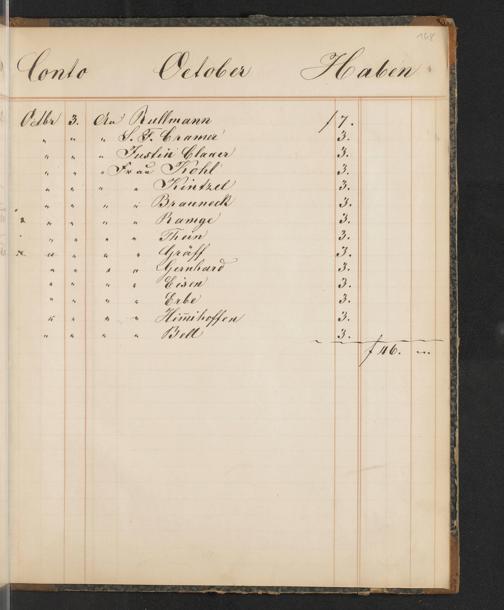 168
Conto October Haben
Octbr 3. An Rullmann f 7.
" " " S. F. Cramer 3.
" " " Justin Clauer 3.
" " " Frau Kohl 3.
" " " " Kintzel 3.
" " " " Brauneck 3.
" " " " Ramge 3.
" " " " Thein 3.
" " " " Gräff 3.
" " " " Gernhard 3.
" " " " Eisen 3.
" " " " Erbe 3.
" " " " Himihoffen 3.
" " " " Bell 3.
f 46. "